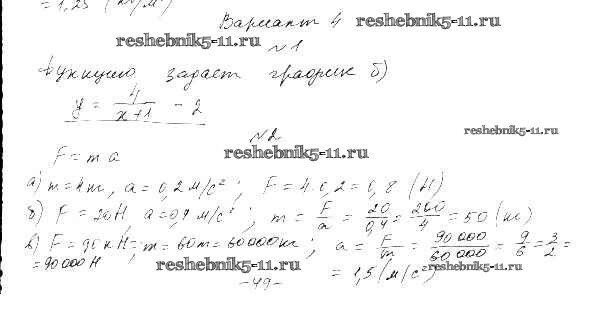 = 1,25 (кг/м³)
Вариант 4 reshebnik5-11.ru
reshebnik5-11.ru
№1
Функцию задает график б)
y = 4/(x+1) - 2
reshebnik5-11.ru
№2
reshebnik5-11.ru
F = m a
а) m = 4 кг, a = 0,2 м/с²; F = 4·0,2 = 0,8 (Н)
б) F = 20Н, a = 0,4 м/с²; m = F/a = 20/0,4 = 200/4 = 50 (кг)
в) F = 90кН = m = 60т = 60000кг; a = F/m = 90 000/60 000 = 9/6 = 3/2 =
= 90 000 Н reshebnik5-11.ru = 1,5 (м/с²) reshebnik5-11.ru
-49-